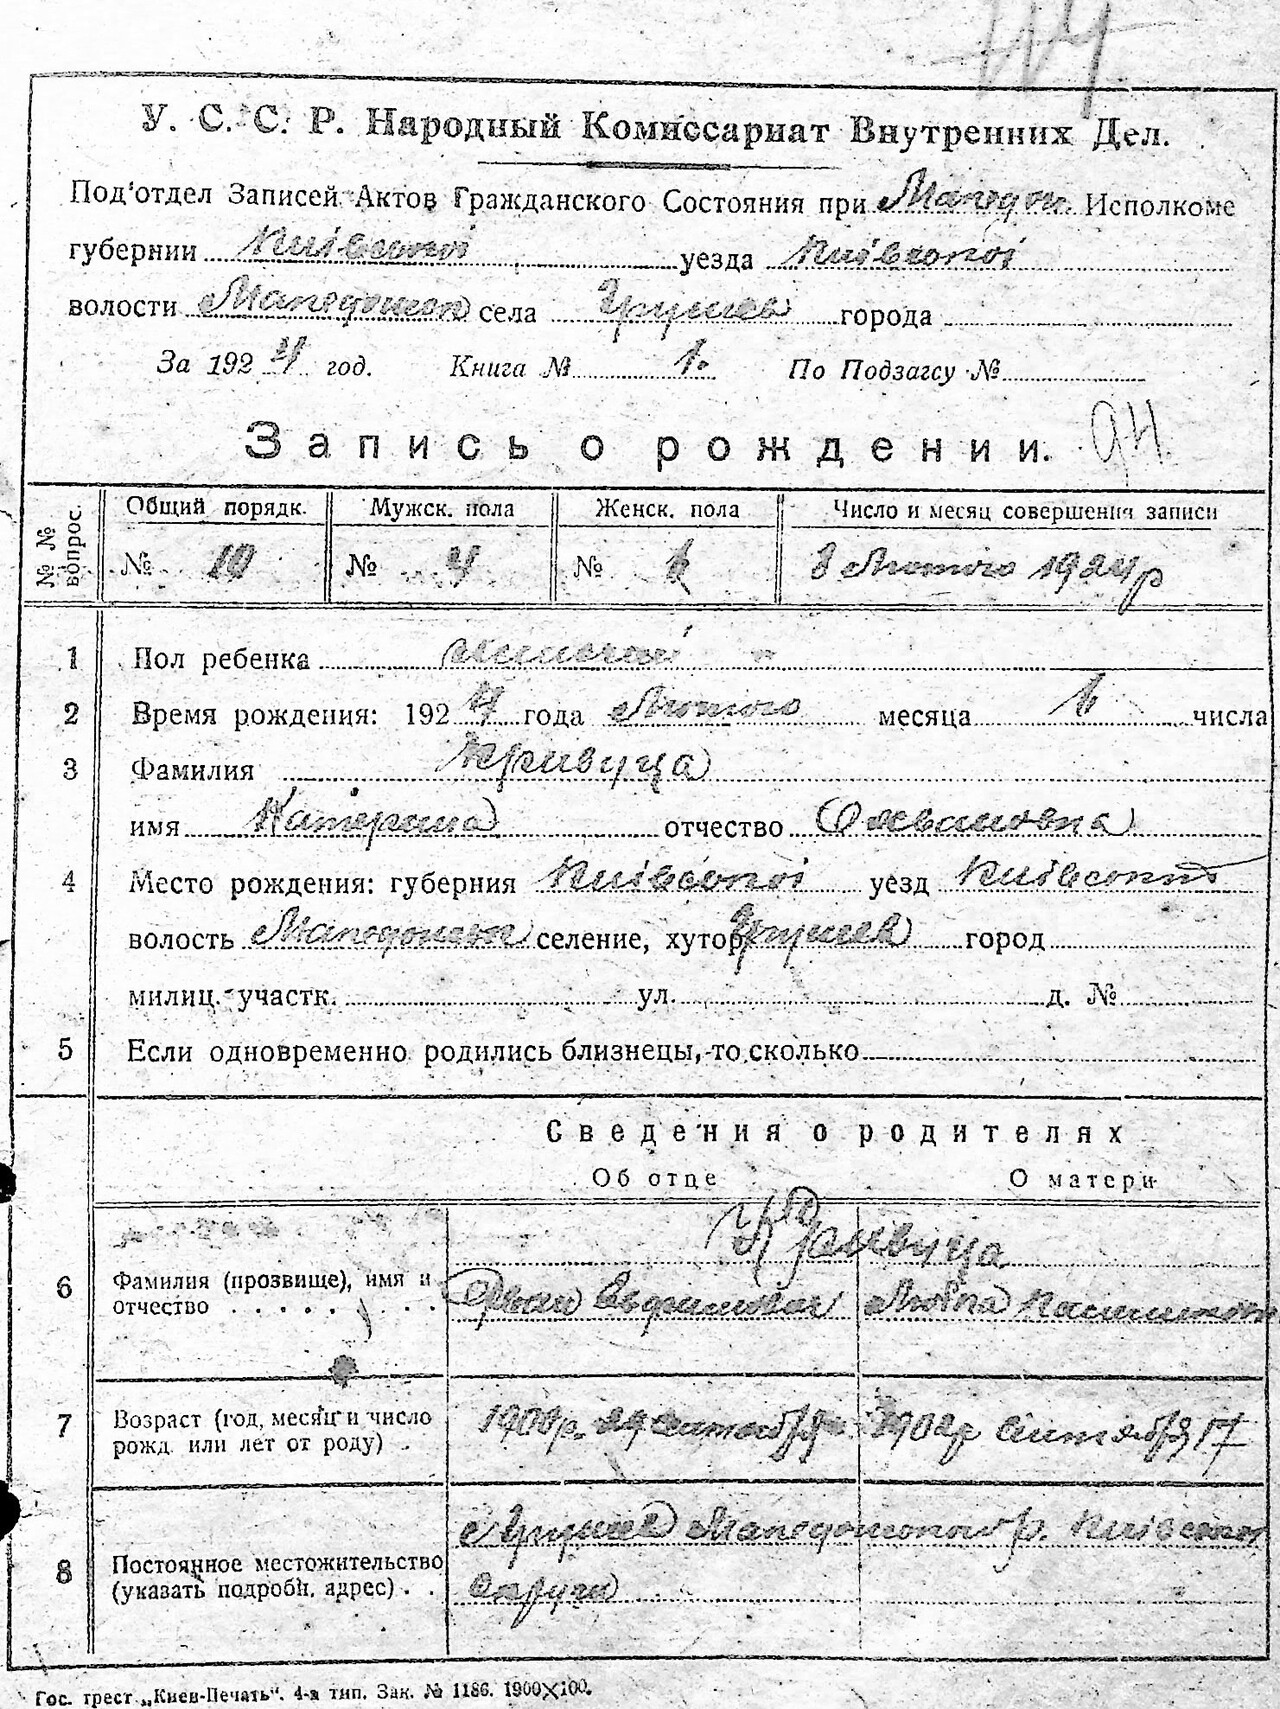 У. С. С. Р. Народный Комиссариат Внутренних Дел.
Под'отдел Записей Актов Гражданского Состояния при Македон. Исполкоме
губернии Київської уезда Київської
волости Македонськ села Грушев города
За 1924 год. Книга № 1. По Подзагсу №
Запись о рождении.
№ № вопрос.
Общий порядк. Мужск. пола Женск. пола Число и месяц совершения записи
№ 10 № 4 № 6 8 Лютого 1924 р
1 Пол ребенка жіночий
2 Время рождения: 1924 года Лютого месяца 6 числа
3 Фамилия Кривуца
имя Катерина отчество
4 Место рождения: губерния Київської уезд Київської
волость Македонськ селение, хутор Грушев город
милиц. участк. ул. д. №
5 Если одновременно родились близнецы, то сколько
Сведения о родителях
Об отце О матери
Кривуца
6 Фамилия (прозвище), имя и
отчество . . . . . . . . Овфимович
7 Возраст (год, месяц и число
рожд. или лет от роду) . 1902р Сентября 17
с Грушев р. Київської
8 Постоянное местожительство
(указать подробн. адрес) . . округи
Гос. трест „Киев-Печать“. 4-я тип. Зак. № 1186. 1900×100.